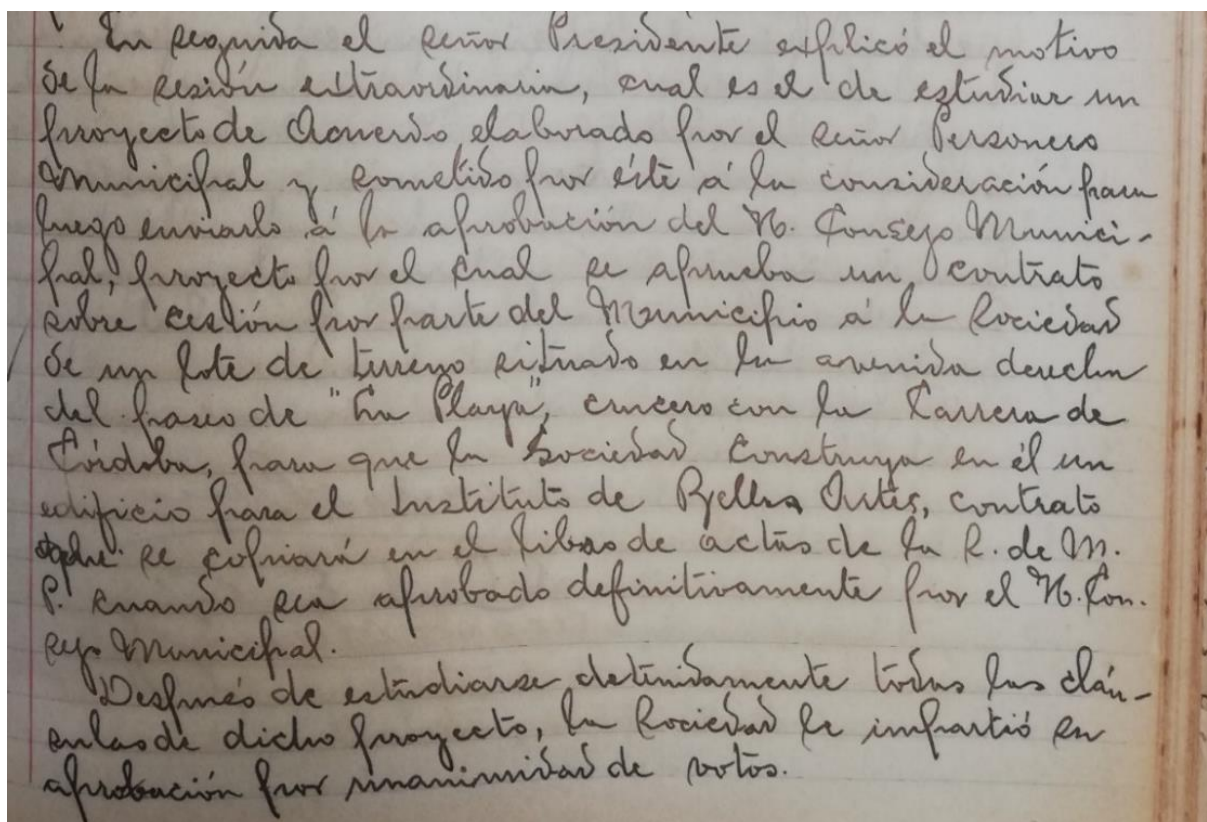 En seguida el señor Presidente explicó el motivo
de la sesión extraordinaria, cual es el de estudiar un
proyecto de Acuerdo elaborado por el señor Personero
Municipal y sometido por éste á la consideración para
luego enviarlo á la aprobación del H. Consejo Munici-
pal, proyecto por el cual se aprueba un contrato
sobre cesión por parte del Municipio á la Sociedad
de un lote de terreno situado en la avenida derecha
del paseo de "La Playa", crucero con la Carrera de
Córdoba, para que la Sociedad construya en él un
edificio para el Instituto de Bellas Artes, contrato
que se copiará en el libro de actas de la S. de M.
P. cuando sea aprobado definitivamente por el H. Con-
sejo Municipal.
Después de estudiarse detenidamente todas las cláu-
sulas de dicho proyecto, la Sociedad le impartió su
aprobación por unanimidad de votos.